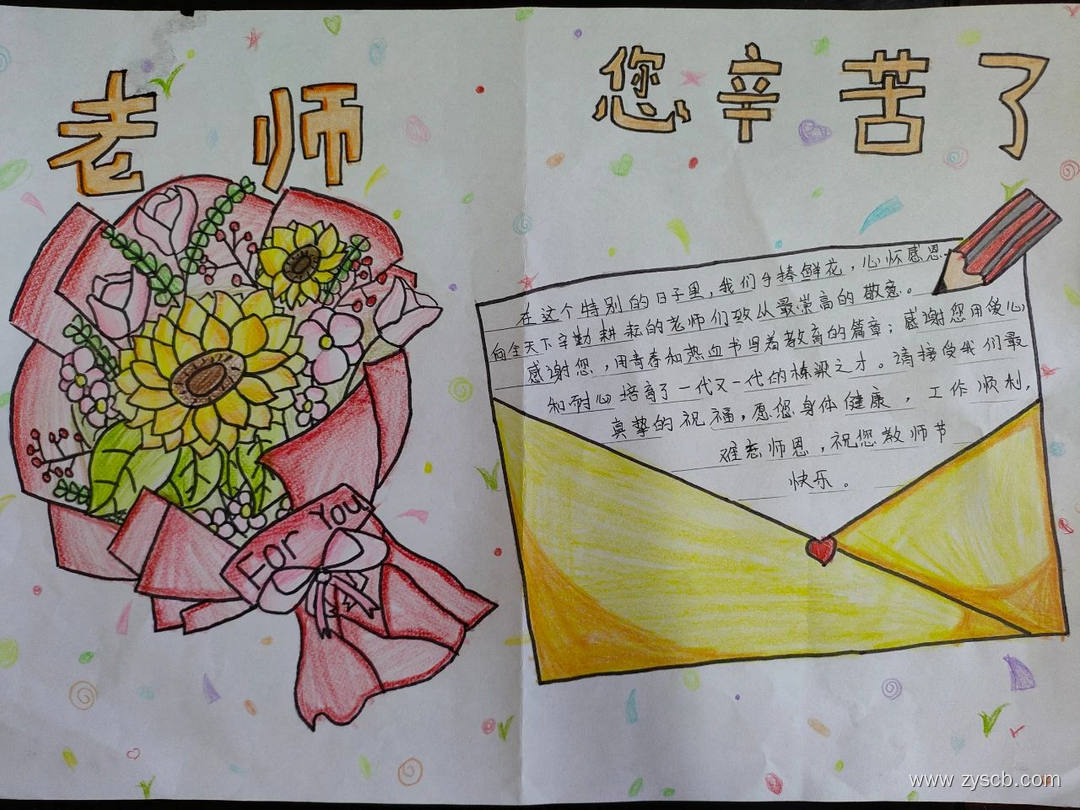 老师
您辛苦了
在这个特别的日子里，我们手捧鲜花，心怀感恩
向全天下辛勤耕耘的老师们致以最崇高的敬意。
感谢您，用青春和热血书写着教育的篇章；感谢您用爱心
和耐心培育了一代又一代的栋梁之才。请接受我们最
真挚的祝福，愿您身体健康，工作顺利，
难忘师恩，祝您教师节
快乐。
For You
www.zyscb.com